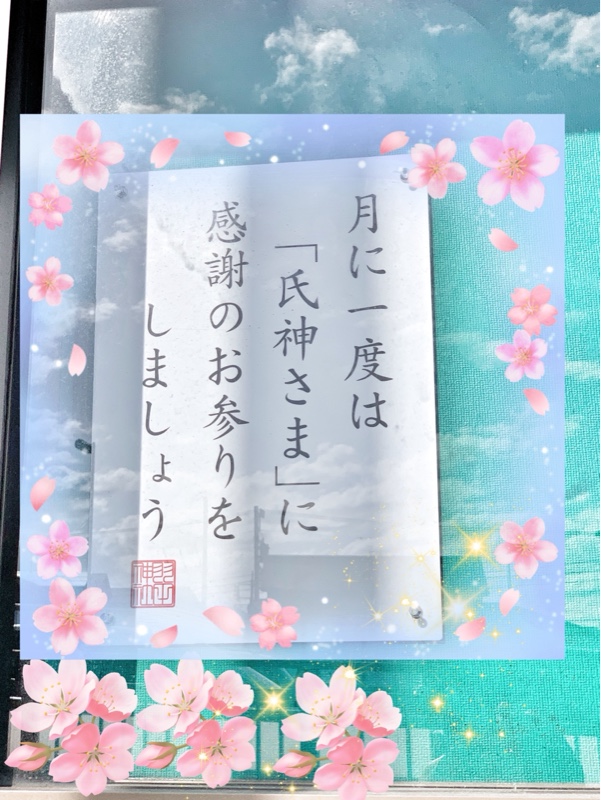 月に一度は
「氏神さま」に
感謝のお参りを
しましょう